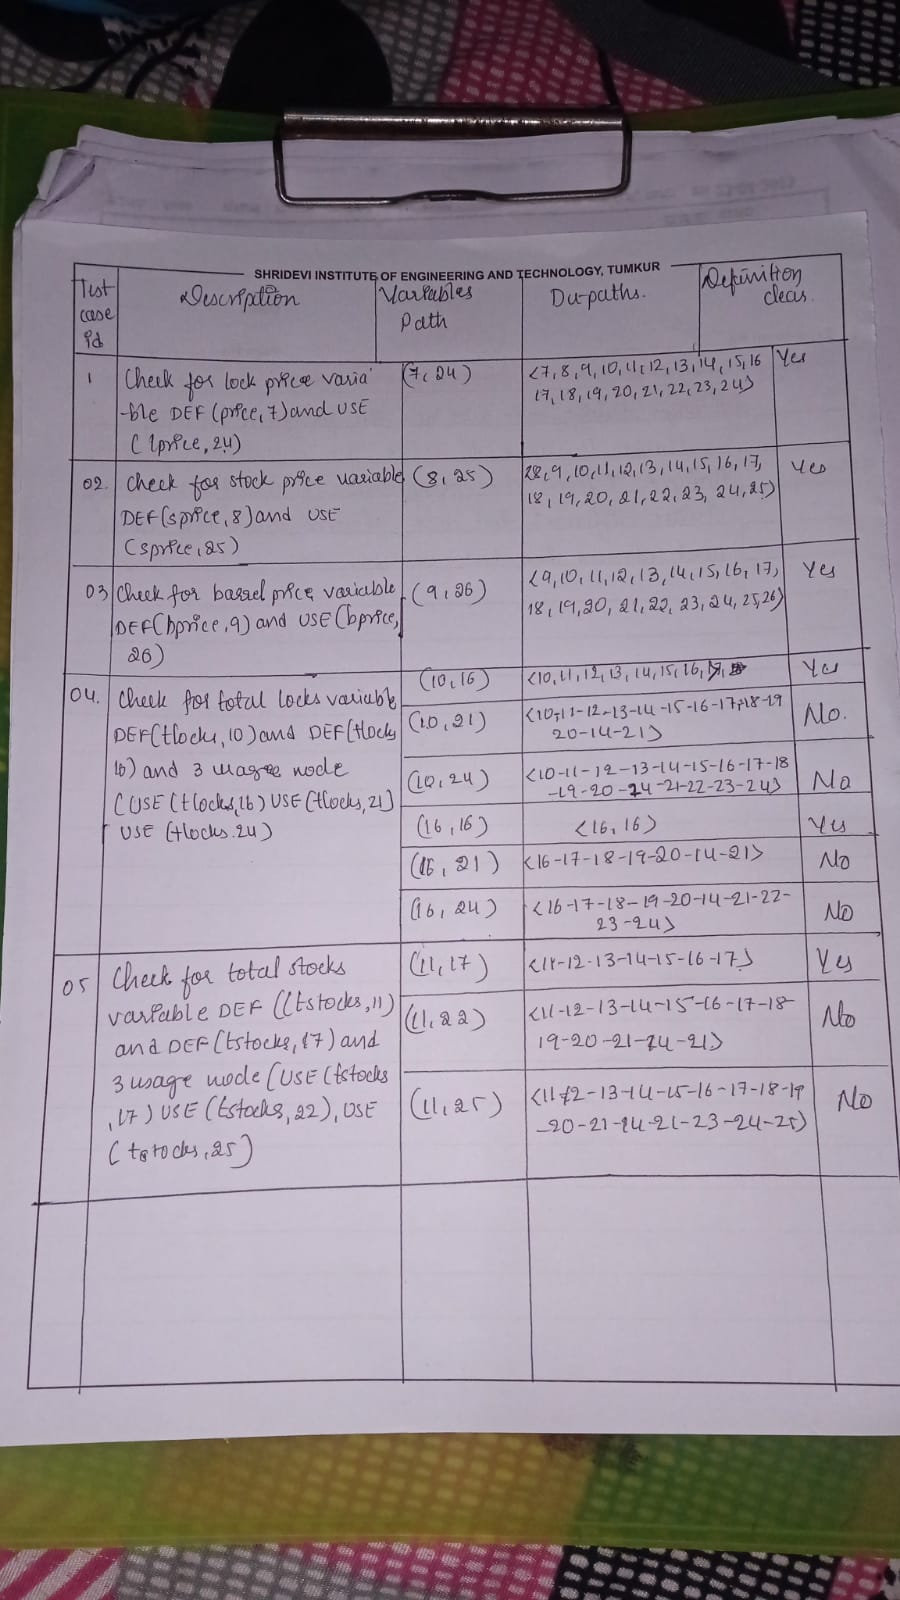 SHRIDEVI INSTITUTE OF ENGINEERING AND TECHNOLOGY, TUMKUR
Test case id
Description
Variables Path
Du-paths.
Definition clear.
1
Check for lock price varia
-ble DEF (price, 7) and USE
(lprice, 24)
(7, 24)
<7, 8, 9, 10, 11, 12, 13, 14, 15, 16
17, 18, 19, 20, 21, 22, 23, 24>
Yes
02.
Check for stock price variable
DEF (sprice, 8) and USE
(sprice, 25)
(8, 25)
<8, 9, 10, 11, 12, 13, 14, 15, 16, 17,
18, 19, 20, 21, 22, 23, 24, 25>
Yes
03
Check for barrel price variable
DEF (bprice, 9) and USE (bprice,
26)
(9, 26)
<9, 10, 11, 12, 13, 14, 15, 16, 17,
18, 19, 20, 21, 22, 23, 24, 25, 26>
Yes
04.
Check for total locks variable
DEF (tlocks, 10) and DEF (tlocks
16) and 3 usage node
(USE (tlocks, 16) USE (tlocks, 21)
USE (tlocks. 24)
(10, 16)
<10, 11, 12, 13, 14, 15, 16,
Yes
(10, 21)
<10-11-12-13-14-15-16-17-18-19
20-14-21>
No.
(10, 24)
<10-11-12-13-14-15-16-17-18
-19-20-14-21-22-23-24>
No
(16, 16)
<16, 16>
Yes
(16, 21)
<16-17-18-19-20-14-21>
No
(16, 24)
<16-17-18-19-20-14-21-22-
23-24>
No
05
Check for total stocks
variable DEF ((tstocks, 11)
and DEF (tstocks, 17) and
3 usage node (USE (tstocks
, 17) USE (tstocks, 22), USE
(tstocks, 25)
(11, 17)
<11-12-13-14-15-16-17>
Yes
(11, 22)
<11-12-13-14-15-16-17-18-
19-20-21-14-21>
No
(11, 25)
<11-12-13-14-15-16-17-18-19
-20-21-14-21-23-24-25>
No